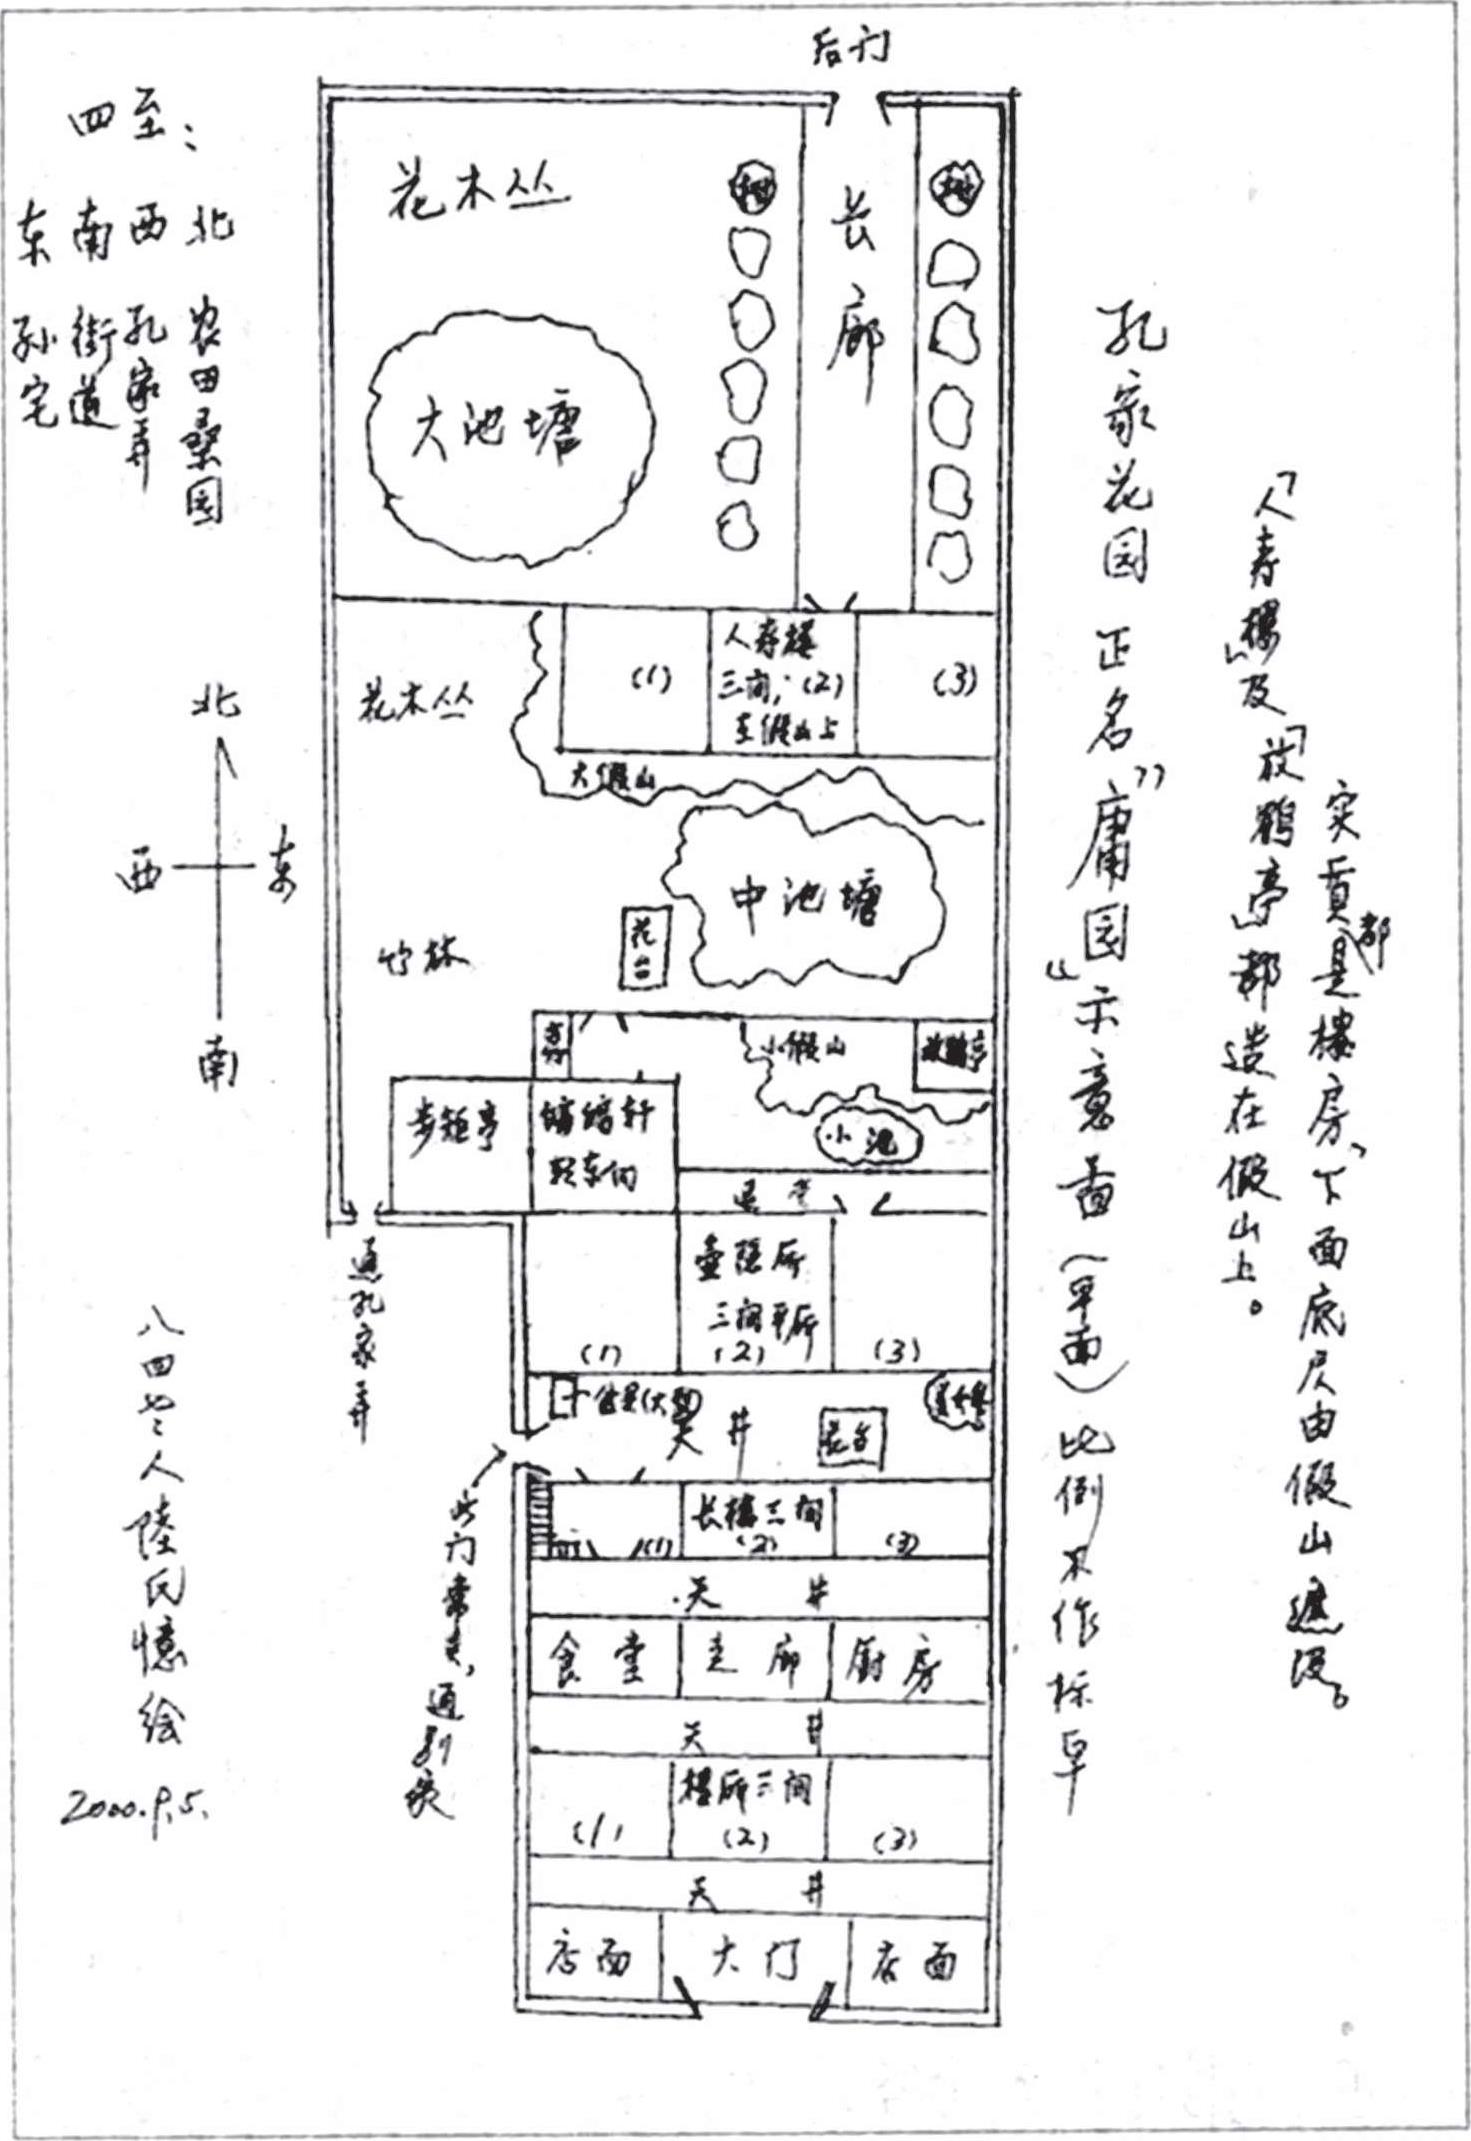 后门
四至：
东 孙宅
南 街道
西 孔家弄
北 农田桑园
花木丛
树
长廊
树
大池塘
人寿楼
三间，(2)
在假山上
(1)
(3)
花木丛
大假山
中池塘
花台
竹林
北
西
东
南
小假山
放鹤亭
步矩亭
轩
小池
退堂
壶隐厅
三间平厅
(1)
(2)
(3)
通孔家弄
天井
花台
此门常关，通别家
长楼三间
(1)
(2)
(3)
天井
食堂
走廊
厨房
天井
楼厅三间
(1)
(2)
(3)
天井
店面
大门
店面
孔家花园正名"庸园"示意畄(单面)比例不作标准
「人寿楼」及「放鹤亭」都造在假山上。
实质都是楼房，下面底层由假山遮没。
八四老人陆氏憶绘
2000.9.5.